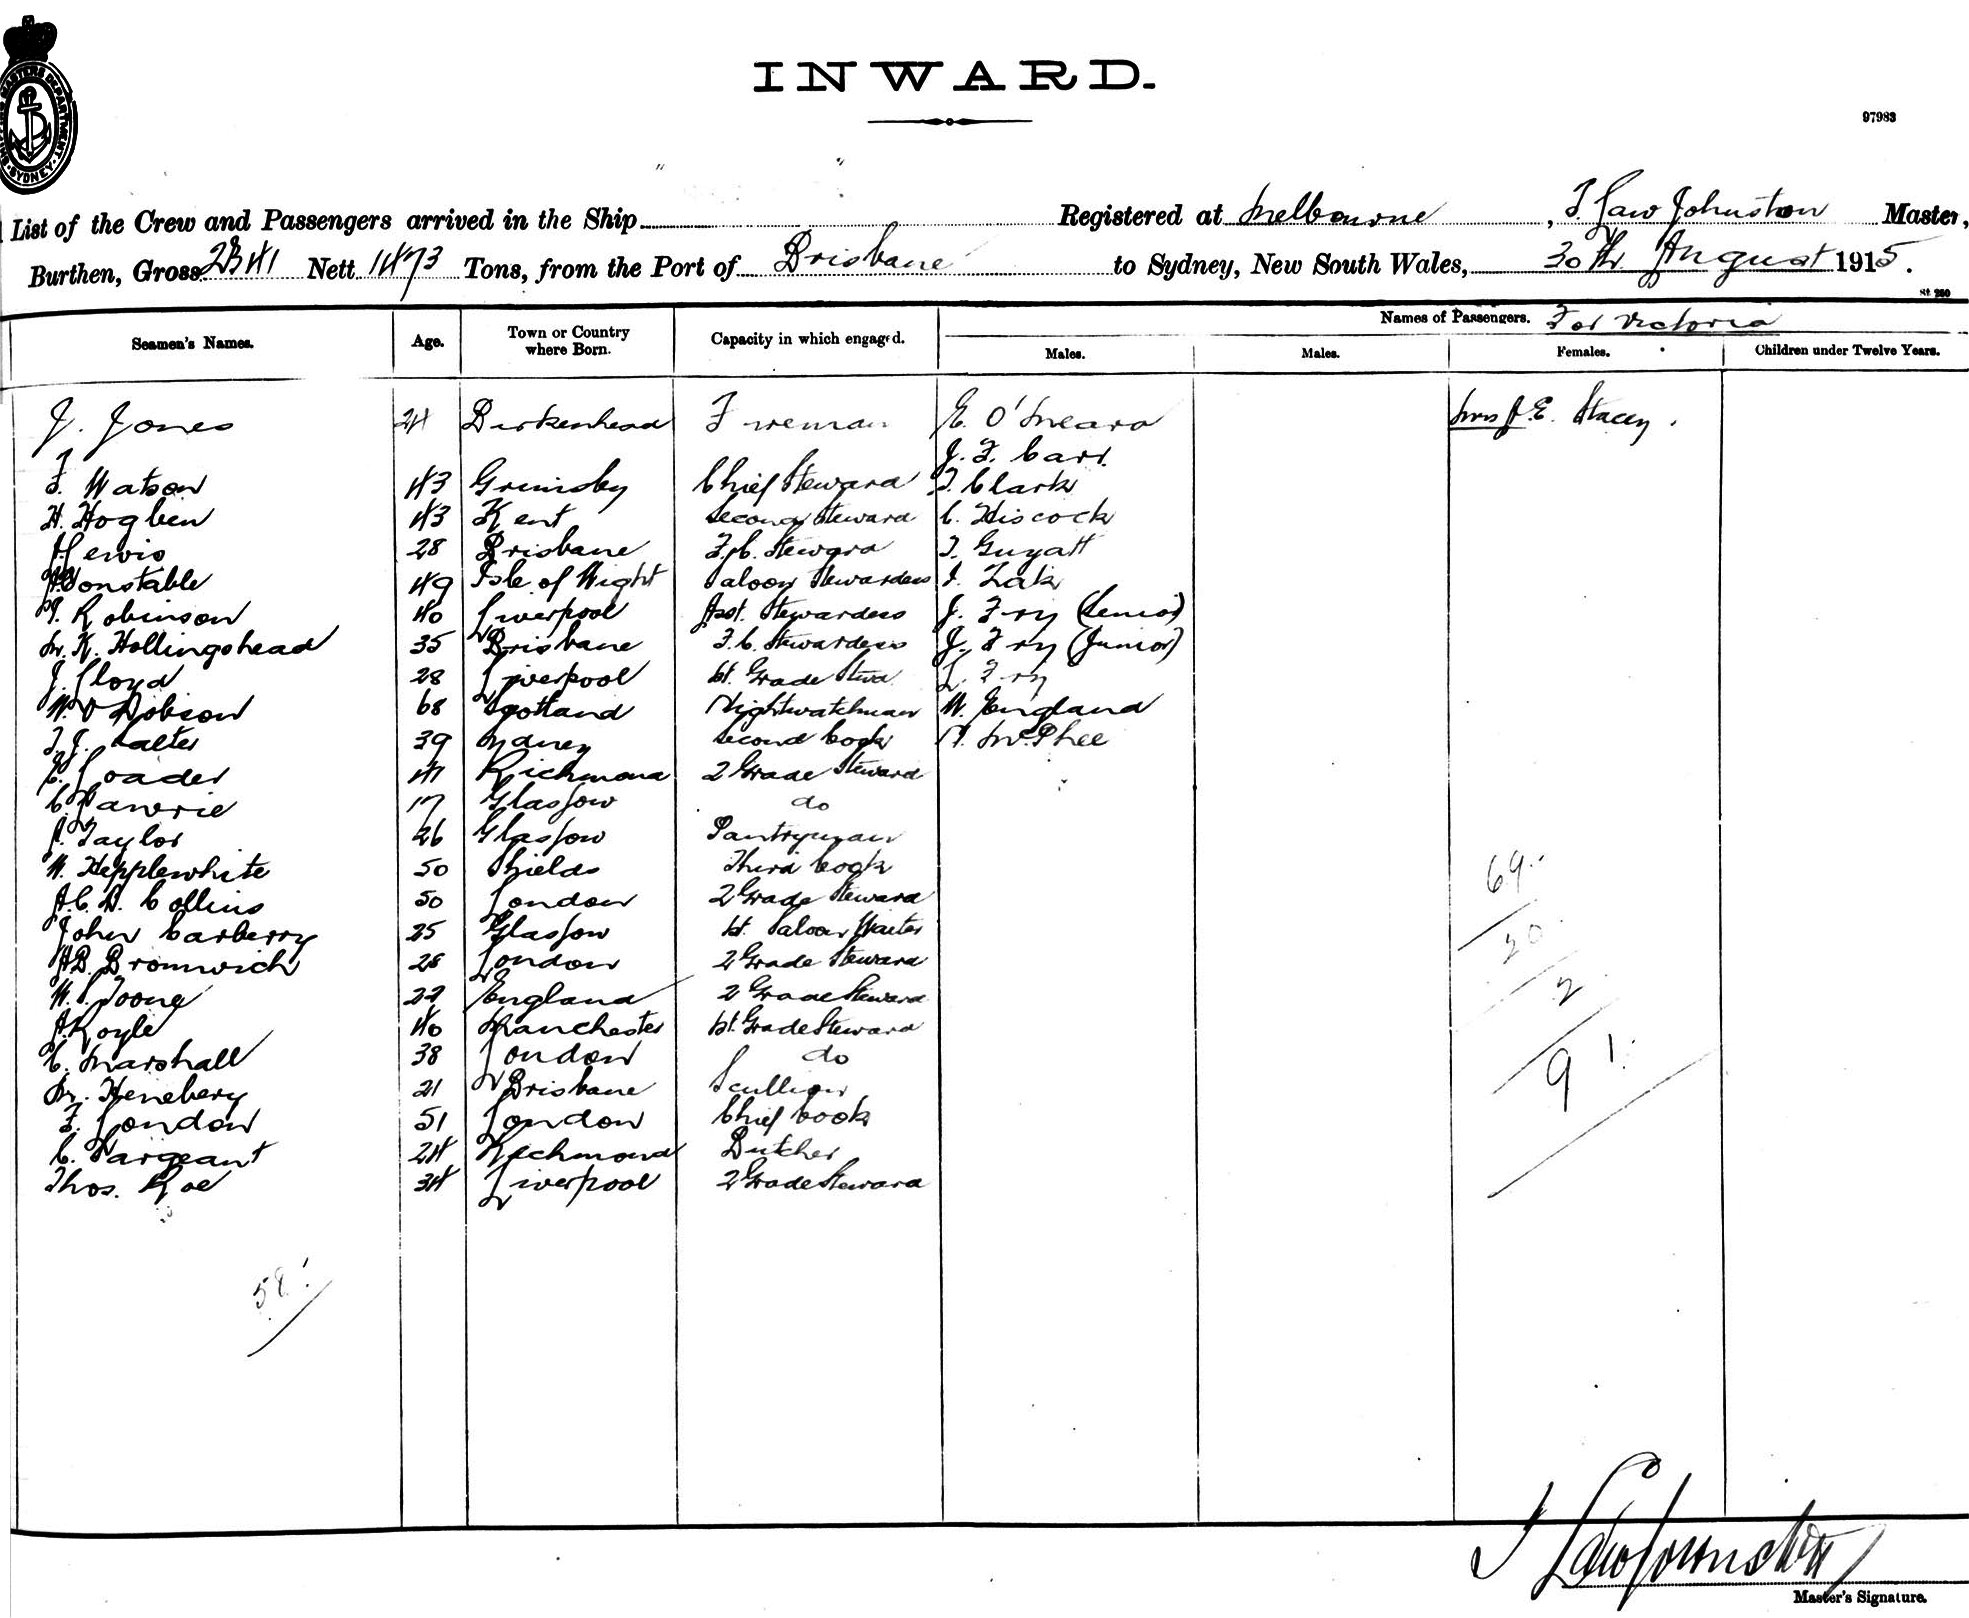 INWARD.
97983
SHIPPING MASTERS DEPARTMENT SYDNEY
List of the Crew and Passengers arrived in the Ship Registered at Melbourne, T. Law Johnston Master,
Burthen, Gross 2341 Nett 1473 Tons, from the Port of Brisbane to Sydney, New South Wales, 30th August 1915.
St. 250
Names of Passengers. For Victoria
Seamen's Names. Age. Town or Country where Born. Capacity in which engaged. Males. Males. Females. Children under Twelve Years.
J. Jones 24 Birkenhead Fireman E. O'Meara Mrs A. E. Stacey.
J. F. Carr.
F. Watson 43 Grimsby Chief Steward T. Clark
H. Hogben 43 Kent Second Steward C. Hiscock
A Lewis 28 Brisbane F. C. Steward T. Guyatt
Constable 49 Isle of Wight Saloon Stewardess I. Zak
Robinson 40 Liverpool Asst. Stewardess J. Fry (Senior)
M. K. Hollingshead 35 Brisbane F. C. Stewardess J. Fry (Junior)
J. Lloyd 28 Liverpool 1st. Grade Stwd. L. Fry
W. Dobson 68 Scotland Nightwatchman W. England
T. J. Salter 39 Sydney Second Cook N. McPhee
C. Loader 41 Richmond 2 Grade Steward
C. Lawrie 17 Glasgow do
A. Taylor 26 Glasgow Pantryman
W. Hepplewhite 50 Shields Third Cook
A. C. H. Collins 50 London 2 Grade Steward
John Carberry 25 Glasgow 1st. Saloon Waiter
A. B. Bromwich 28 London 2 Grade Steward
W. S. Toone 22 England 2 Grade Steward
A. Royle 40 Manchester 1st. Grade Steward
C. Marshall 38 London do
M. Henebery 21 Brisbane Scullion
F. London 51 London Chief Cook
C. Sargeant 24 Richmond Butcher
Thos. Roe 34 Liverpool 2 Grade Steward
69
20
2
91
58
T Law Johnston
Master's Signature.